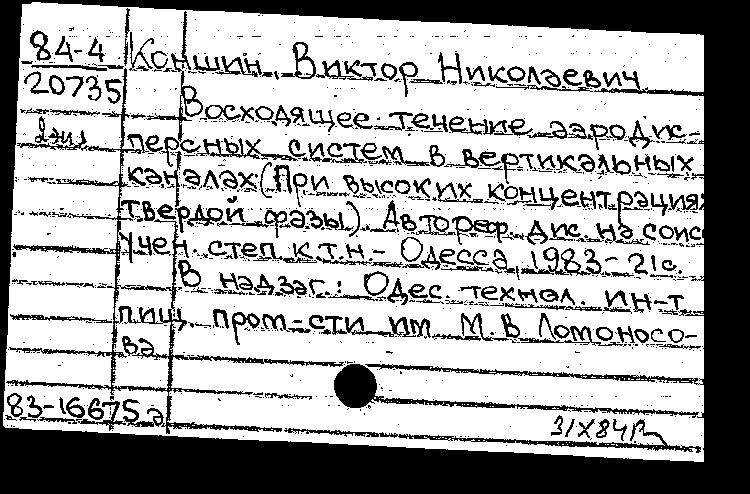 84-4
20735
Коншин, Виктор Николаевич
Восходящее течение аэродис-
персных систем в вертикальных
каналах (При высоких концентрациях
твердой фазы). Автореф. дис. на соиск
учен. степ к.т.н. - Одесса, 1983 - 21с.
В надзаг.: Одес. технол. ин-т
пищ. пром-сти им М.В Ломоносо-
ва
83-16675а
31X84